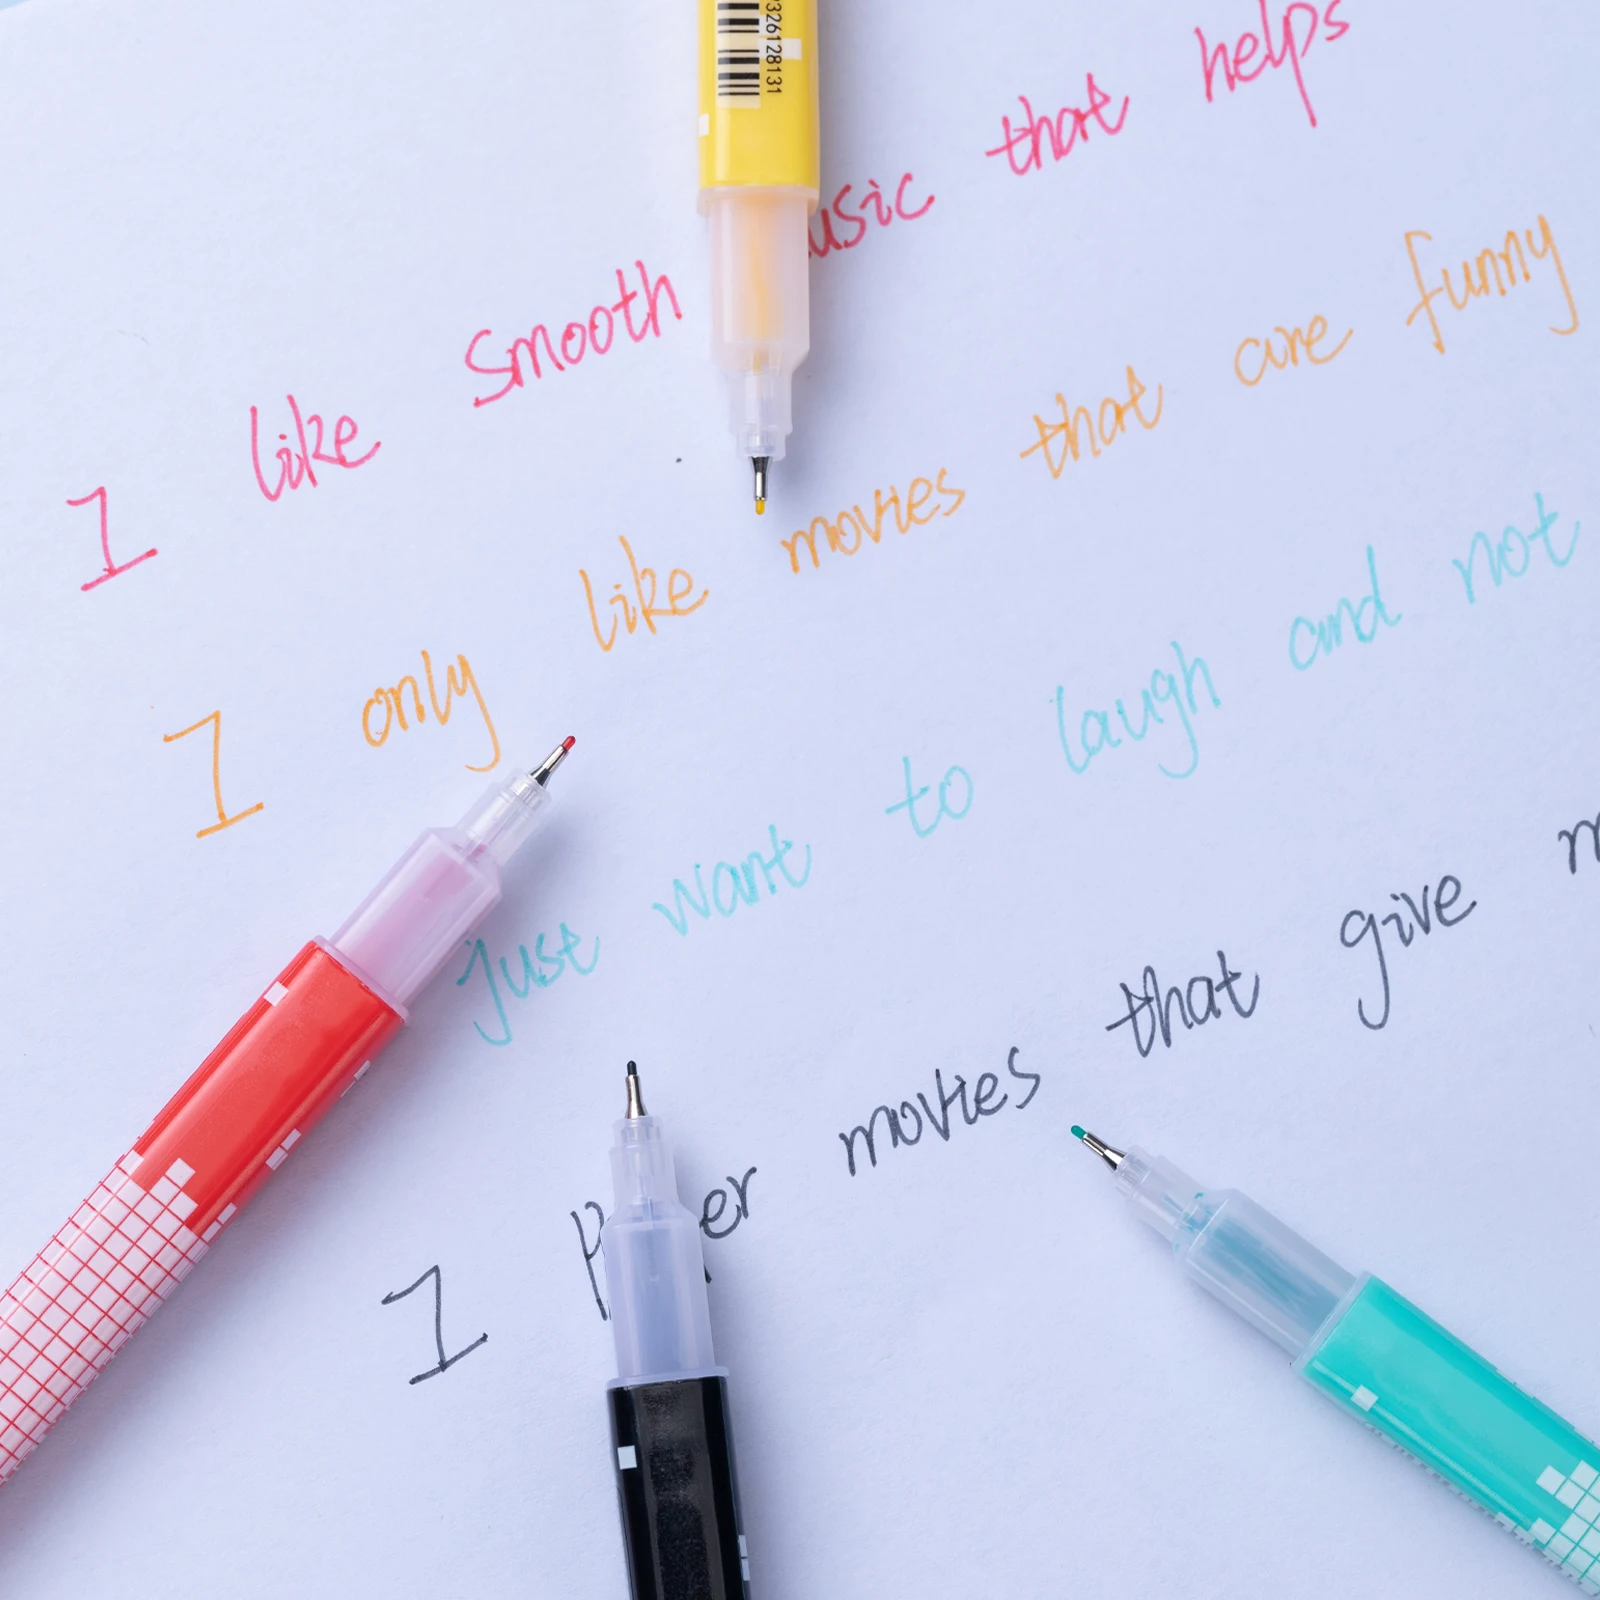 I like smooth usic that helps
I only like movies that are funny
just want to laugh and not
I er movies that give m
26128131